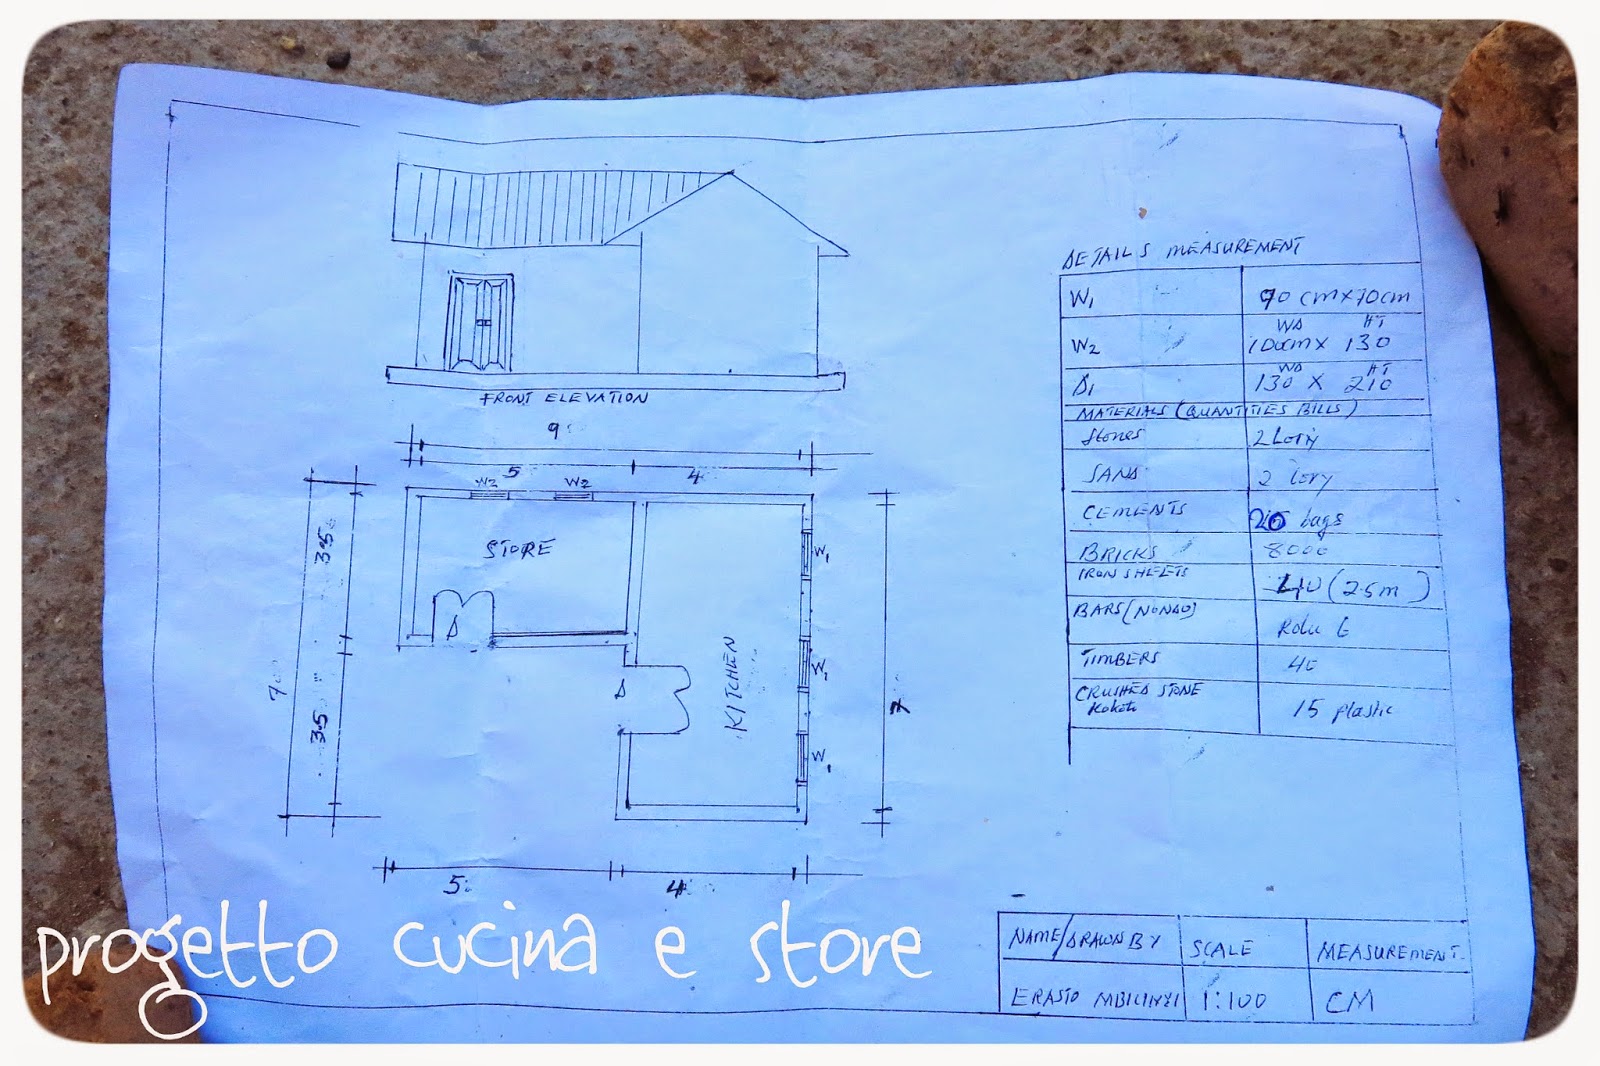 FRONT ELEVATION
9
5 4
W2 W2
STORE
3.5
7
3.5
D
W1
D
KITCHEN
W1
W1
7
5 4
DETAILS MEASUREMENT
W1 90cmx70cm
WD HT
W2 100cmx 130
WD HT
D1 130 x 210
MATERIALS (QUANTITIES BILLS)
Stones 2 Lorry
SAND 2 lory
CEMENTS 20 bags
BRICKS 8000
IRON SHEETS 40 (2.5m)
BARS (NONDO)
TIMBERS 40
CRUSHED STONE 15 plastic
Kokoto
NAME/DRAWN BY SCALE MEASUREMENT
ERASTO MBILINYI 1:100 CM
progetto cucina e store